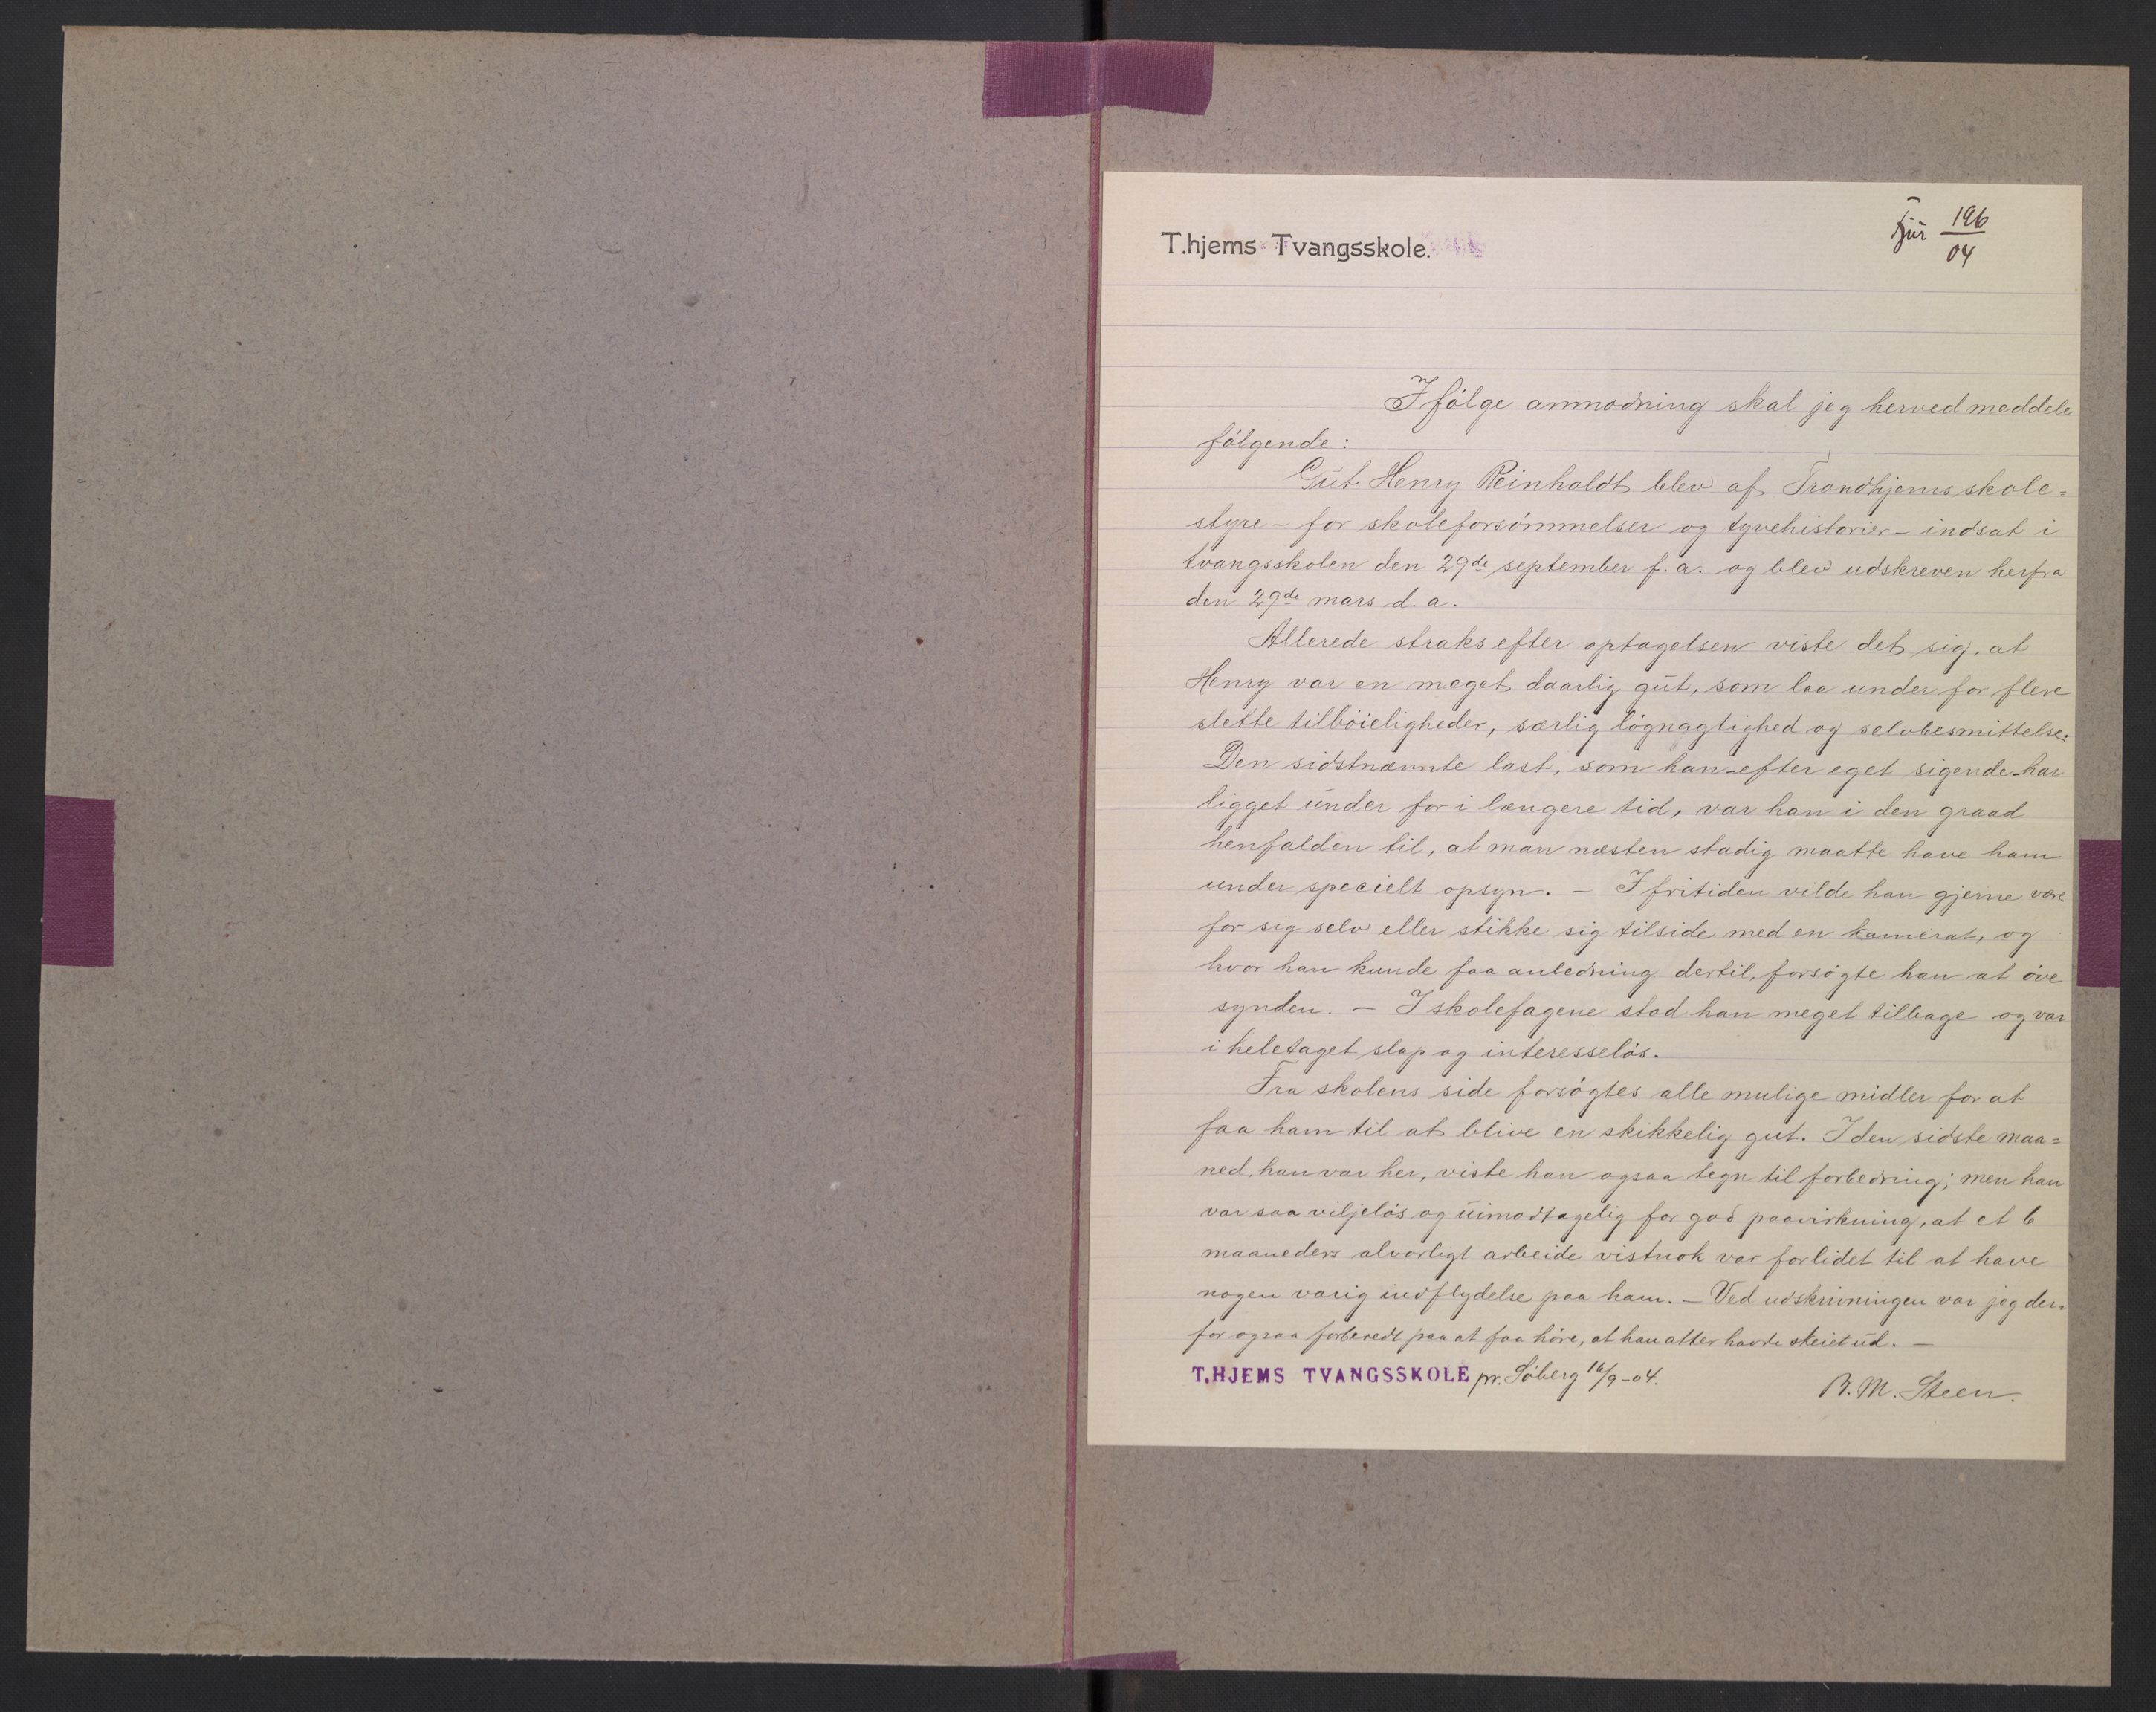 T.hjems Tvangsskole.
196
04
Ifølge anmodning skal jeg herved meddele
følgende:
Gut Henry Reinholdt blev af Trondhjems skole=
styre - for skoleforsømmelser og tyvehistorier - indsat i
tvangsskolen den 29de september f. a. og blev udskreven herfra
den 29de mars d. a.
Allerede straks efter optagelsen viste det sig, at
Henry var en meget daarlig gut, som laa under for flere
slette tilbøieligheder, særlig løgnagtighed og selvbesmittelse.
Den sidstnævnte last, som han - efter eget sigende - har
ligget under for i længere tid, var han i den graad
henfalden til, at man næsten stadig maatte have ham
under specielt opsyn. - I fritiden vilde han gjerne være
for sig selv eller stikke sig tilside med en kamerat, og
hvor han kunde faa anledning dertil, forsøgte han at øve
synden. - I skolefagene stod han meget tilbage og var
i heletaget slap og interesseløs.
Fra skolens side forsøgtes alle mulige midler for at
faa ham til at blive en skikkelig gut. I den sidste maa=
ned, han var her, viste han ogsaa tegn til forbedring; men han
var saa viljeløs og uimodtagelig for god paavirkning, at et 6
maaneders alvorligt arbeide vistnok var forlidet til at have
nogen varig indflydelse paa ham. - Ved udskrivningen var jeg der=
for ogsaa forberedt paa at faa høre, at han atter havde skeiet ud. -
T.HJEMS TVANGSSKOLE pr. Søberg 16/9-04.
B. M. Steen.